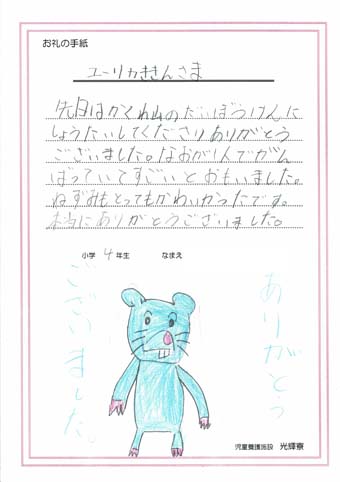 お礼の手紙
ユーリカききんさま
先日はかくれ山のだいぼうけんに
しょうたいしてくださりありがとう
ございました。なおが1人でがん
ばっていてすごいとおもいました。
ねずみもとってもかわいかったです。
本当にありがとうございました。
小学 4 年生 なまえ
ありがとう
ございました。
児童養護施設 光輝寮